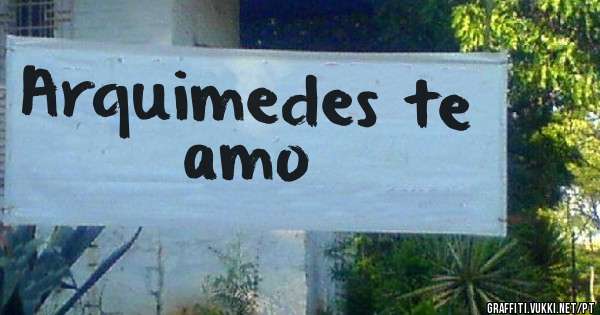 Arquimedes te
amo
GRAFFITI.VUKKI.NET/PT